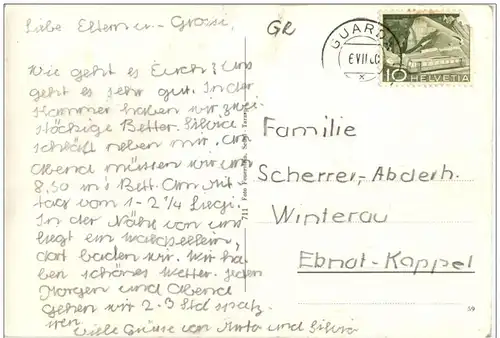 Liebe Eltern u. Grossi,
Wie geht es Euch? Uns
geht es sehr gut. In der
Kammer haben wir zwei-
stöckige Better. Silvia
schläft neben mir. Am
Abend müssen wir um
8,30 in's Bett. Am Mit-
tag von 1-2 1/4 Liegi.
In der Nähe von uns
liegt ein
dort baden wir. Wir ha-
ben schönes Wetter. Jeden
Morgen und Abend
gehen wir 2-3 Std spatz-
ieren.
Viele Grüsse von Anita und Silvia
GR
GUARDA
6 VII
x
10 HELVETIA
711 Foto Feuerstein, Scuol-Tarasp
Familie
Scherrer-Abderh.
Winterau
Ebnat-Kappel
59